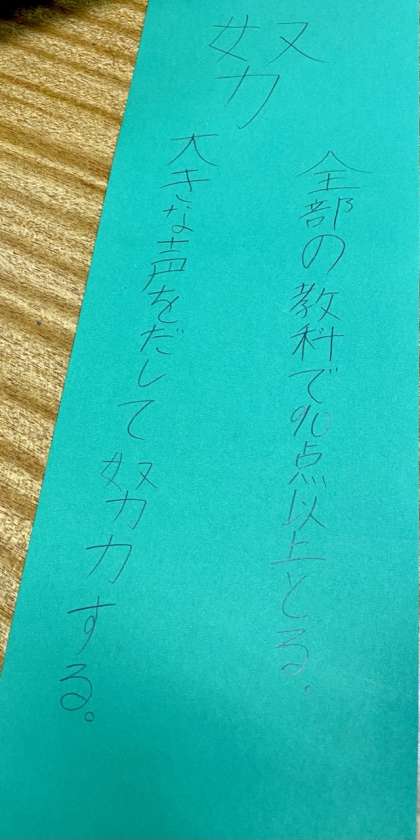 努
全部の教科で90点以上とる.
大きな声をだして努力する。